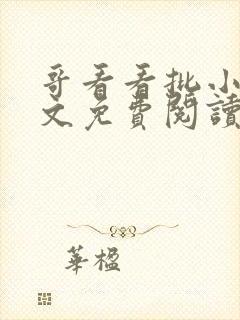 哥看看批小
文免費閱讀
華楹